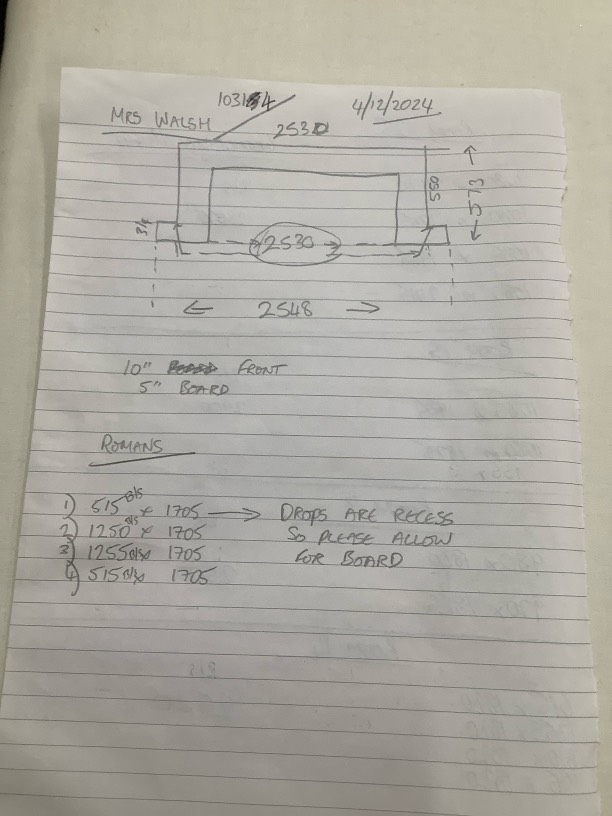 4/12/2024
MRS WALSH
2530
550
573
3/4
2530
2548
10" FRONT
5" BOARD
ROMANS
1) 515 B/S x 1705 → DROPS ARE RECESS
2) 1250 B/S x 1705 SO PLEASE ALLOW
3) 1255 B/S x 1705 FOR BOARD
4) 515 B/S x 1705